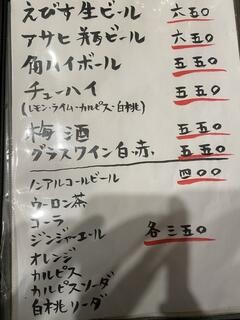 えびす生ビール 六五〇
アサヒ 瓶ビール 六五〇
角ハイボール 五五〇
チューハイ 五五〇
(レモン・ライム・カルピス・白桃)
梅酒 五五〇
グラスワイン白・赤 五五〇
ノンアルコールビール 四〇〇
ウーロン茶
コーラ
ジンジャーエール 各三五〇
オレンジ
カルピス
カルピスソーダ
白桃ソーダ